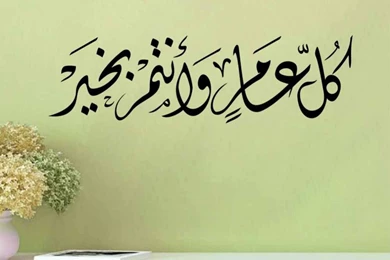 كُلّ عَامٍ وَأَنْتُمْ بِخَيْر